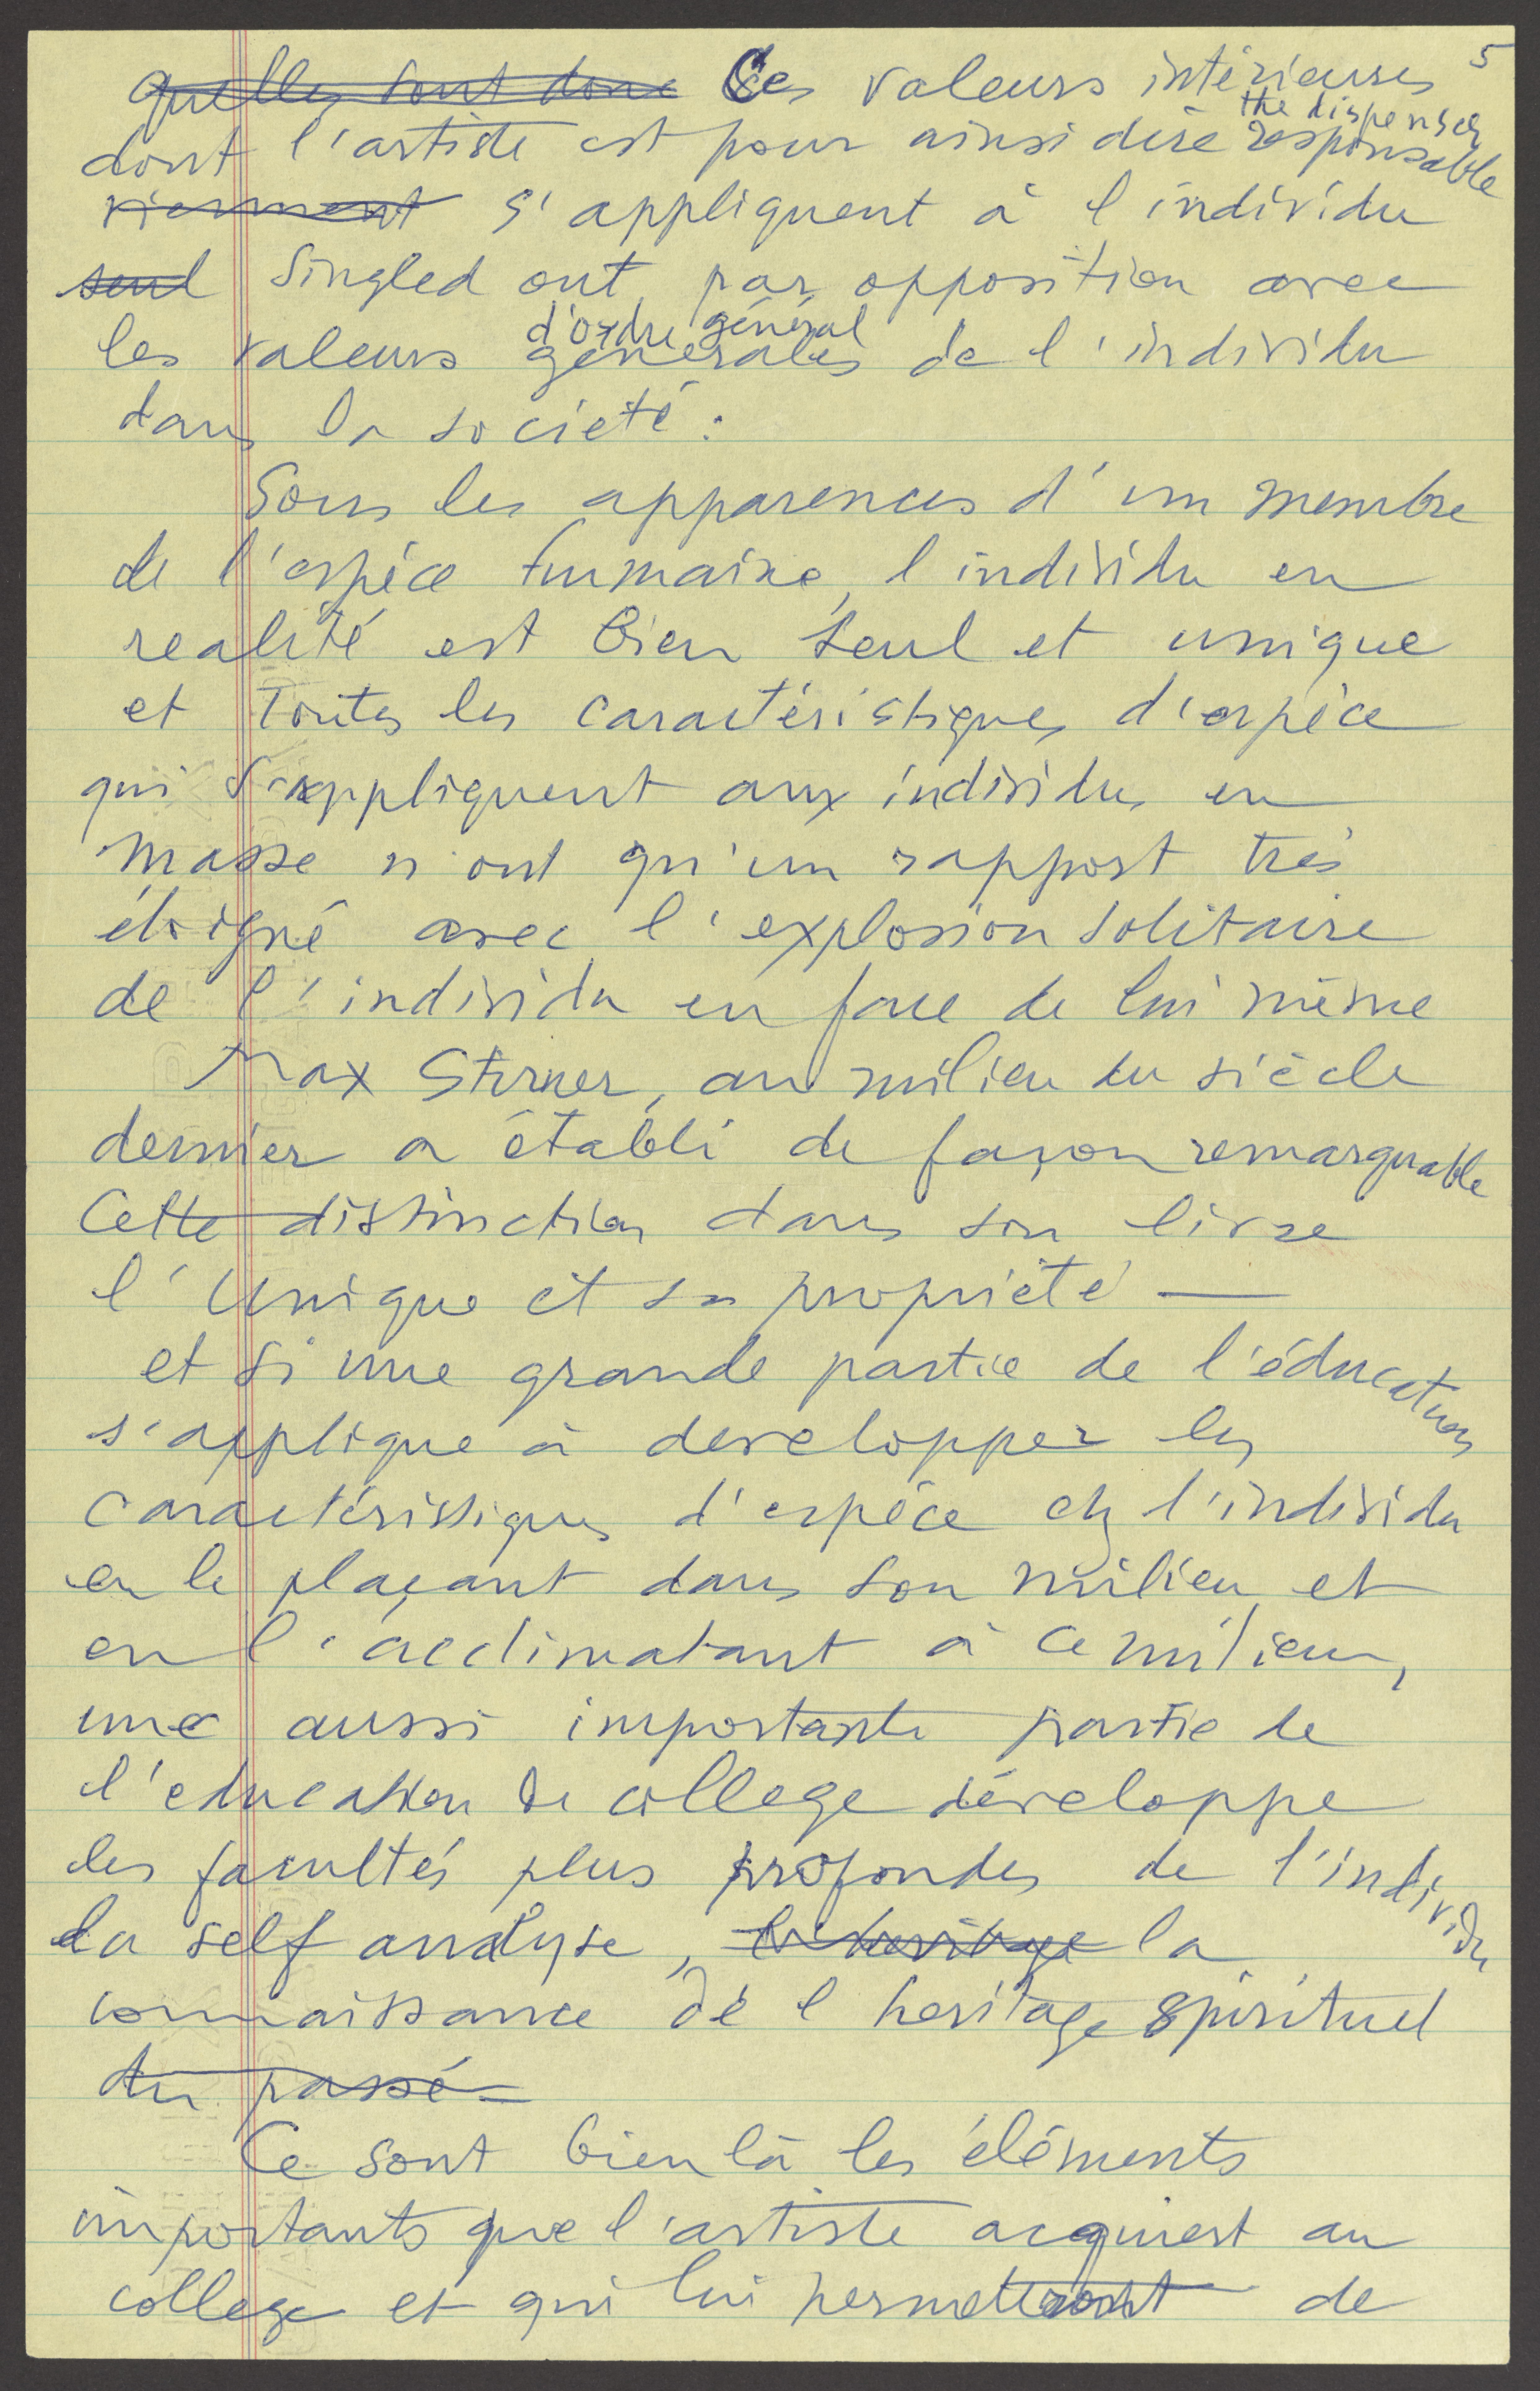 5
quelles sont donc Ces valeurs intérieures
the dispenser
dont l'artiste est pour ainsi dire responsable
viennent s'appliquent à l'individu
seul singled out, par opposition avec
d'ordre général
les valeurs générales de l'individu
dans la societé :
Sous les apparences d'un membre
de l'espèce humaine, l'individu en
realité est bien seul et unique
et toutes les caractéristiques d'espèce
qui s'appliquent aux individus en
masse n'ont qu'un rapport très
éloigné avec l'explosion solitaire
de l'individu en face de lui même
Max Stirner, au milieu du siècle
dernier a établi de façon remarquable
Cette distinction dans son livre
l'Unique et sa propriété —
et si une grande partie de l'éducation
s'applique à developper les
caractéristiques d'espèce chz l'individu
en le plaçant dans son milieu et
en l'acclimatant à ce milieu,
une aussi importante partie de
l'education de college développe
les facultés plus profondes de l'individu
la self analyse, l'heritage la
connaissance de l heritage spirituel
du passé –
Ce sont bien là les éléments
importants que l'artiste acquiert au
college et qui lui permettront de